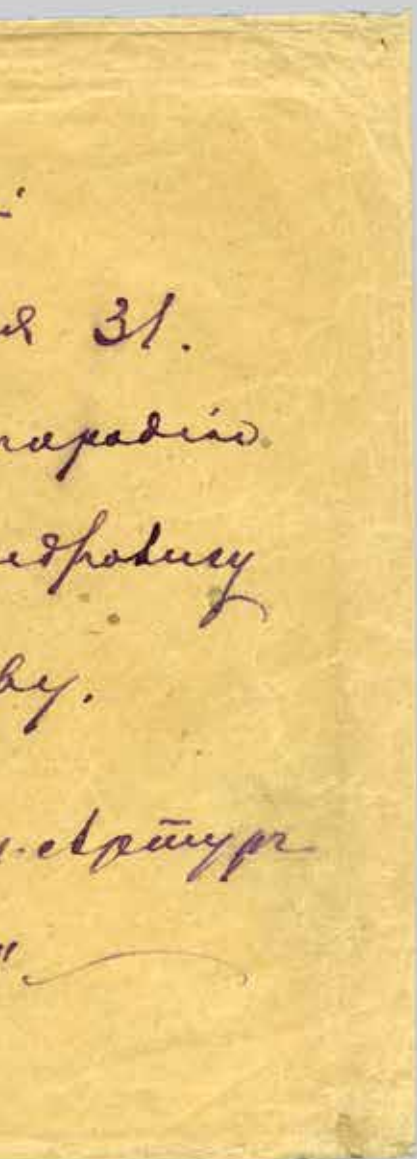 я 31.
городію
едровичу
ву.
.-Артуръ
"